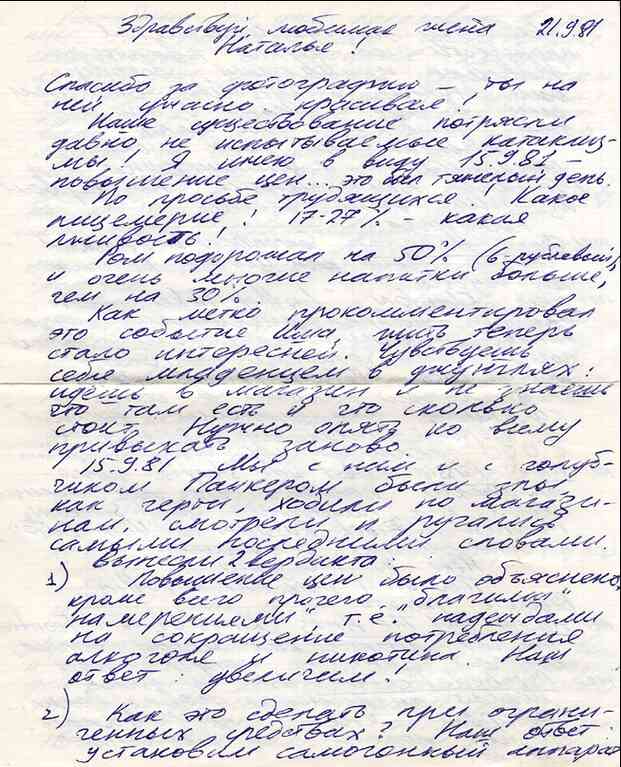 Здравствуй, любимая жена 21.9.81
Наталья!
Спасибо за фотографию – ты на
ней ужасно красивая!
Наше существование потрясли
давно не испытываемые катаклиз-
мы! Я имею в виду 15.9.81 –
повышение цен... это был тяжелый день.
По просьбе трудящихся! Какое
лицемерие! 17-27% – какая
лживость!
Ром подорожал на 50% (6-рублевый),
и очень многие напитки больше,
чем на 30%.
Как метко прокомментировал
это событие жить теперь
стало интересней. Чувствуешь
себя младенцем в джунглях:
идешь в магазин и не знаешь
что там есть и что сколько
стоит. Нужно опять ко всему
привыкать заново.
15.9.81 Мы с ним и с голуб-
чиком были злы
как черти, ходили по магази-
нам, смотрели и ругались
самыми последними словами.
Вынесли 2 вердикта:
1) Повышение цен было объяснено,
кроме всего прочего, „благими
намерениями", т.е. надеждами
на сокращение потребления
алкоголя и никотина. Наш
ответ: увеличим!
2) Как это сделать при ограни-
ченных средствах? Наш ответ:
установим самогонный аппарат